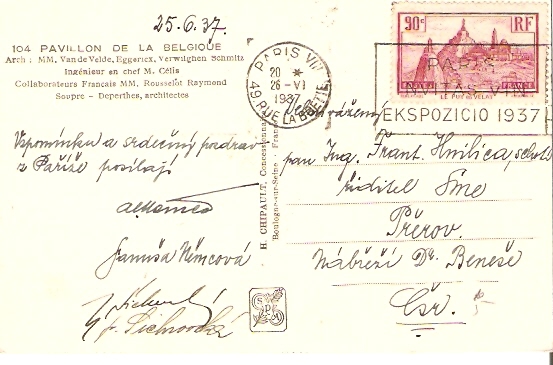 25.6.37.
104 PAVILLON DE LA BELGIQUE
Arch : MM. Van de Velde, Eggericx, Verwilghen Schmitz
Ingénieur en chef M. Célis
Collaborateurs Francais MM. Rousselot Raymond
Soupre - Deperthes, architectes
Vzpomínku a srdečný pozdrav
z Paříže posílají
Januša Němcová
H. CHIPAULT, Concessionnaire
Boulogne-sur-Seine - France
PARIS VIII
20 *
26 - VI
1937
49 RUE LA BOETIE
90c RF
LE PUY EN VELAY
PARIS
INVITAS VIN
EKSPOZICIO 1937
pan Ing. Frant. Hnilica,
ředitel Sme
Přerov.
Nábřeží Dr. Beneše
Čsr.